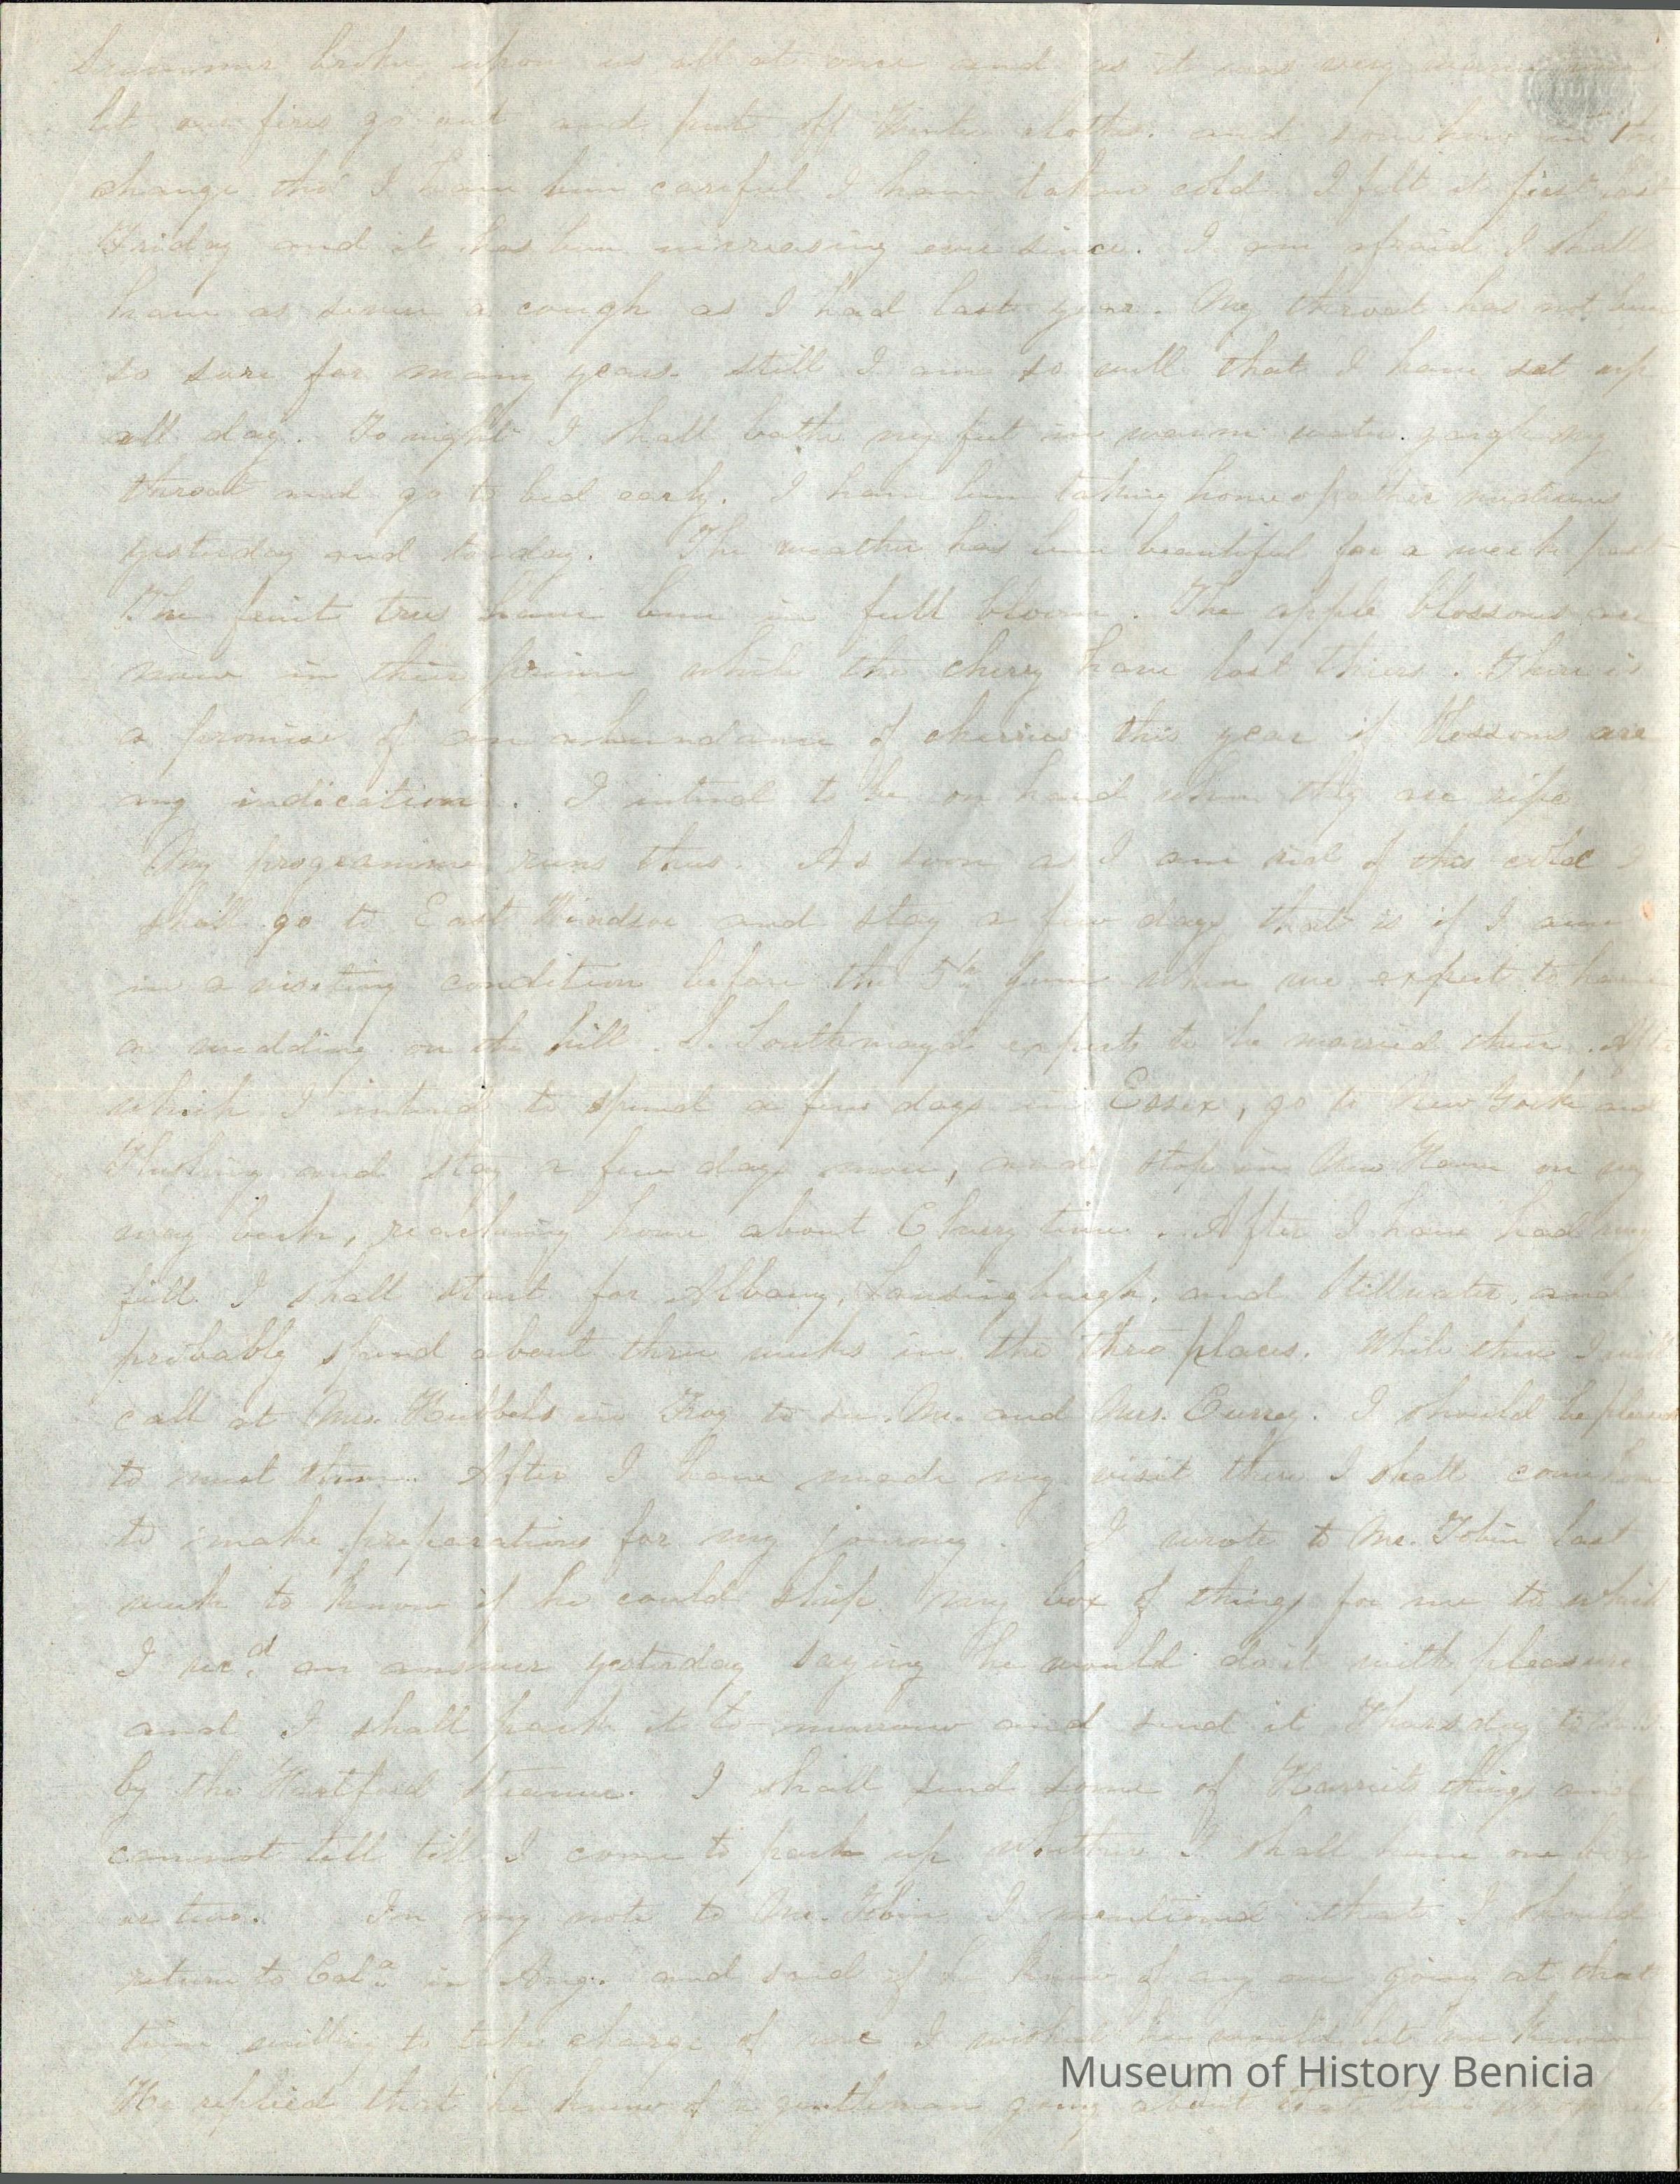 Summer broke upon us all at once and as it was very warm
let our fires go out and put off Winter clothes. and somehow in the
change tho' I have been careful I have taken cold. I felt it first last
Friday and it has been increasing ever since. I am afraid I shall
have as severe a cough as I had last year. My throat has not been
so sore for many years. still I am so well that I have sat up
all day. To night I shall bathe my feet in warm water. gargle my
throat and go to bed early. I have been taking homeopathic medicines
yesterday and to-day. The weather has been beautiful for a week past
The fruit trees have been in full bloom. The apple blossoms are
now in their prime while the cherry have lost theirs. There is
a promise of an abundance of cherries this year if blossoms are
any indication. I intend to be on hand when they are ripe
My programme runs thus. As soon as I am rid of this cold I
shall go to East Windsor and stay a few days that is if I am
in a visiting condition before the 5th June when we expect to have
a wedding on the hill. S. Southmayd expects to be married then. After
which I intend to spend a few days in Essex, go to New York and
Flushing and stay a few days more, and stop in New Haven on my
way back, reaching home about Cherry time. After I have had my
fill I shall start for Albany, Lansingburgh, and Stillwater, and
probably spend about three weeks in the three places. While there I will
call at Mrs. Hubbels in Troy to see Mr. and Mrs. Currey. I should be pleased
to meet them. After I have made my visit there I shall come home
to make preparations for my journey. I wrote to Mr. Tobin last
week to know if he could ship my box of things for me to which
I recd. an answer yesterday saying he would do it with pleasure
and I shall pack it to-morrow and send it Thursday to him
by the Hartford Steamer. I shall send some of Harriets things and
cannot tell till I come to pack up whether I shall have one box
or two. In my note to Mr. Tobin I mentioned that I should
return to Cala. in Aug. and said if he knew of any one going at that
time willing to take charge of me I wished he would let me know
He replied that he knew of a gentleman going about that time
Museum of History Benicia